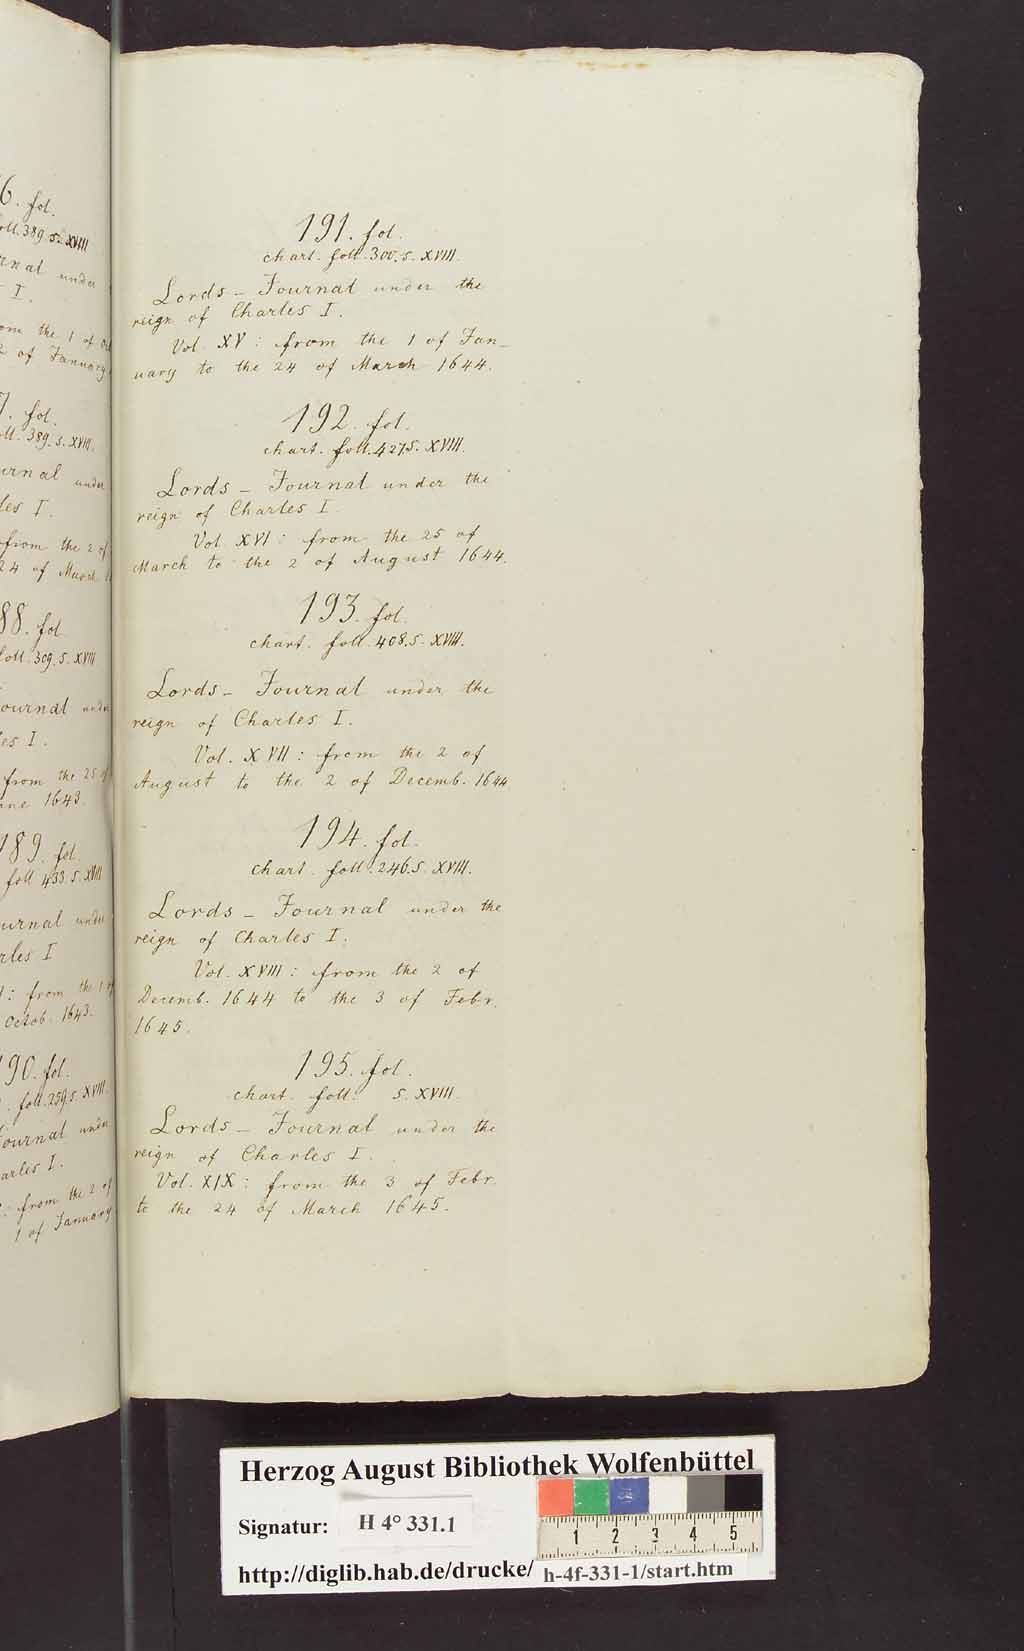 6. fol.
foll. 389. s. XVIII
rnal under
I.
om the 1 of Oct
2 of January
7. fol.
ll. 389. s. XVIII.
urnal under
les I.
from the 2 of
24 of March
88. fol.
foll. 309. s. XVIII
ournal under
es I.
from the 25 of
une 1643.
189. fol.
foll 433. s. XVIII
urnal under
rles I
: from the 1 of
Octob. 1643.
190. fol.
. foll. 259. s. XVIII.
Journal under
arles I.
: from the 2 of
1 of January
191. fol.
chart. foll. 300. s. XVIII.
Lords - Journal under the
reign of Charles I.
Vol. XV : from the 1 of Jan-
uary to the 24 of March 1644.
192. fol.
chart. foll. 427. s. XVIII.
Lords - Journal under the
reign of Charles I.
Vol. XVI : from the 25 of
March to the 2 of August 1644.
193. fol.
chart. foll. 408. s. XVIII.
Lords - Journal under the
reign of Charles I.
Vol. XVII : from the 2 of
August to the 2 of Decemb. 1644
194. fol.
chart. foll. 246. s. XVIII.
Lords - Journal under the
reign of Charles I.
Vol. XVIII : from the 2 of
Decemb. 1644 to the 3 of Febr.
1645.
195. fol.
chart. foll. s. XVIII.
Lords - Journal under the
reign of Charles I.
Vol. XIX : from the 3 of Febr.
to the 24 of March 1645.
Herzog August Bibliothek Wolfenbüttel
Signatur: H 4° 331.1
1 2 3 4 5
http://diglib.hab.de/drucke/ h-4f-331-1/start.htm